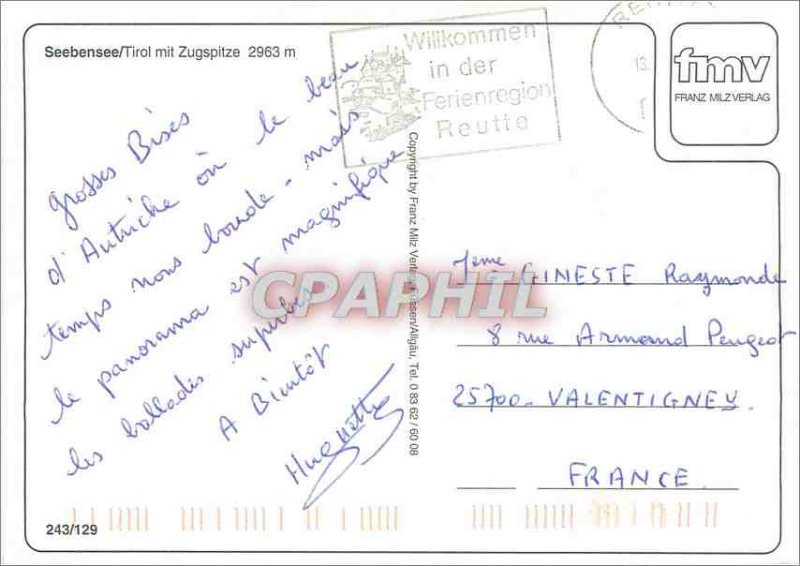 Seebensee/Tirol mit Zugspitze 2963 m
Willkommen
in der
Ferienregion
Reutte
fmv
FRANZ MILZ VERLAG
grosses Bises
d'Autriche où le beau
temps nous boude - mais
le panorama est magnifique
les ballades superbes
A Bientôt
Huguette
Copyright by Franz Milz Verlag, Füssen/Allgäu, Tel. 0 83 62 / 60 08
CPAPHIL
Mme GINESTE Raymonde
8 rue Armand Peugeot
25700 - VALENTIGNEY.
FRANCE.
243/129